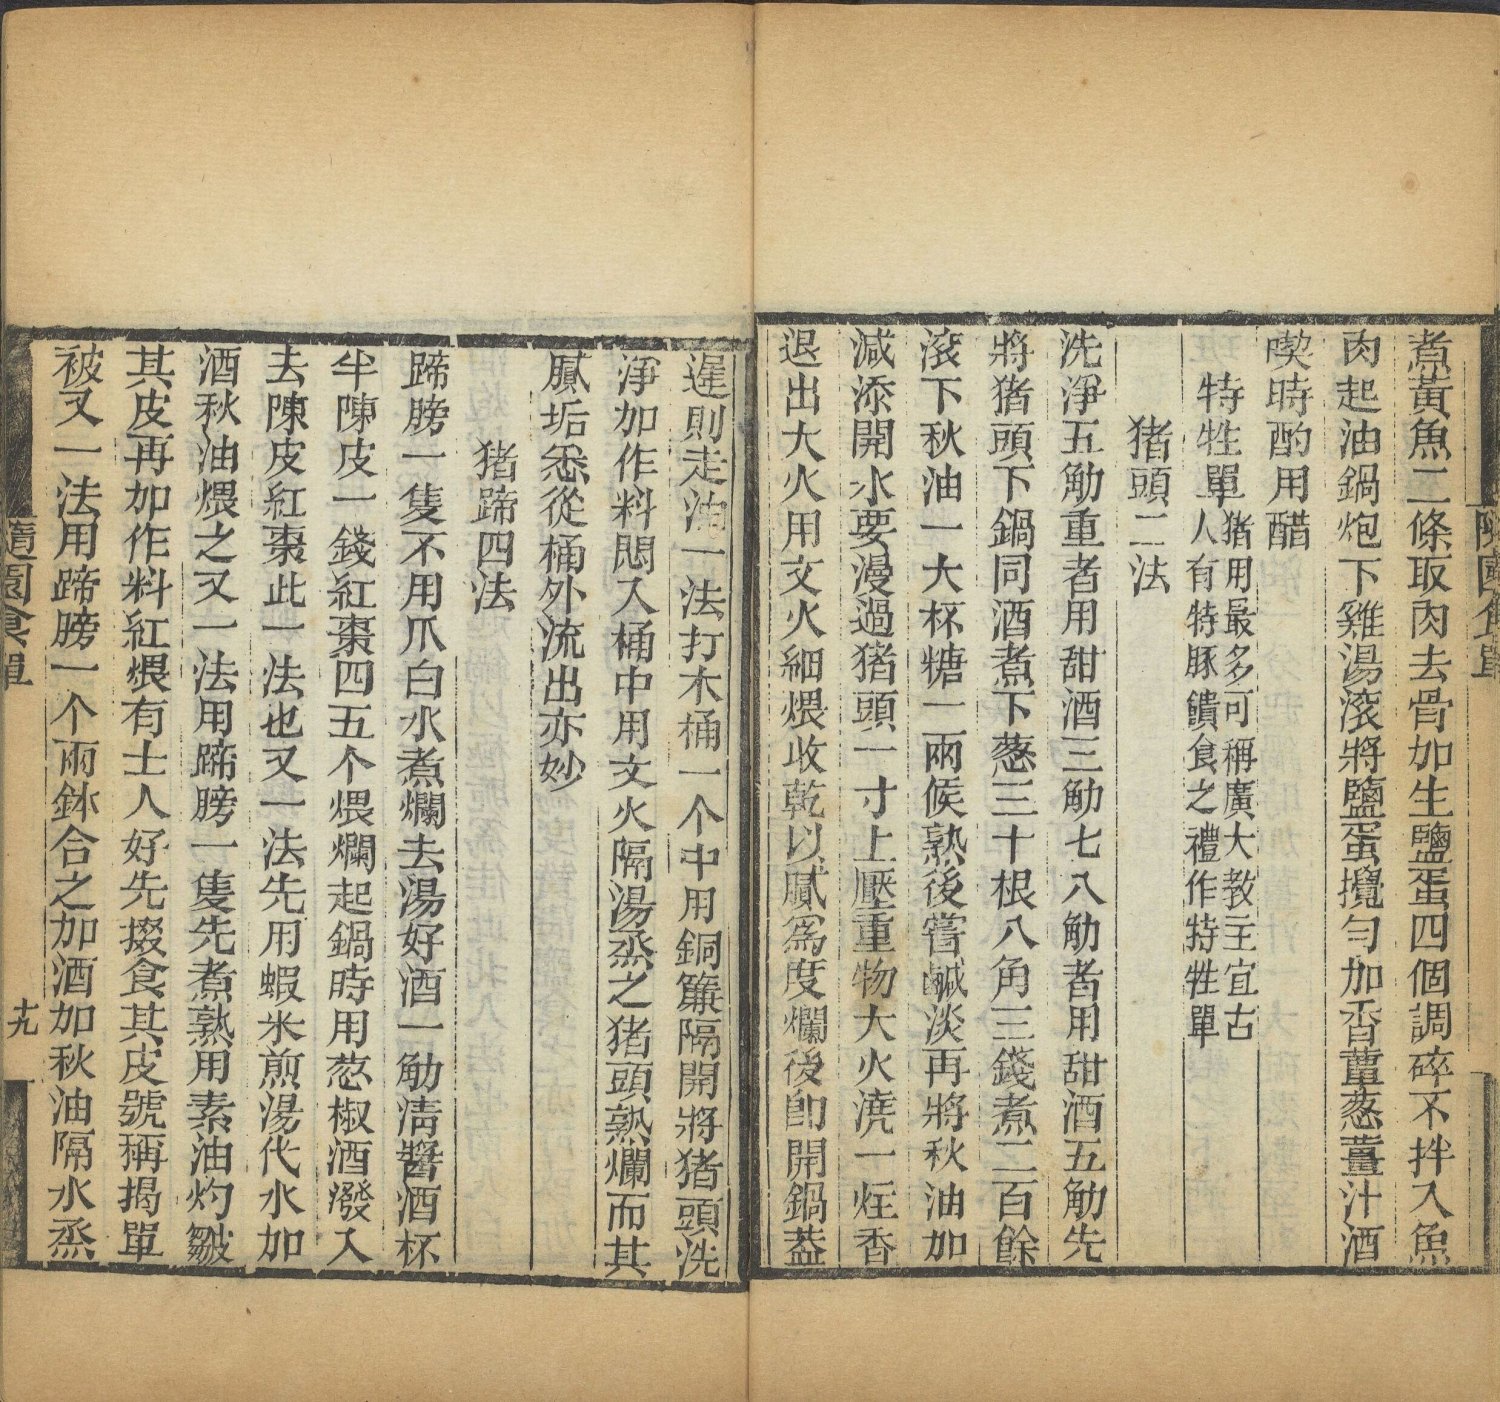 煮黃魚二條取肉去骨加生鹽蛋四個調碎不拌入魚
肉起油鍋炮下雞湯滾將鹽蛋攪勻加香蕈葱薑汁酒
喫時酌用醋
特牲單
猪用最多可稱廣大教主宜古
人有特豚饋食之禮作特牲單
猪頭二法
洗淨五觔重者用甜酒三觔七八觔者用甜酒五觔先
將猪頭下鍋同酒煮下葱三十根八角三錢煮二百餘
滾下秋油一大杯糖一兩候熟後嘗鹹淡再將秋油加
減添開水要漫過猪頭一寸上壓重物大火燒一炷香
退出大火用文火細煨收乾以膩爲度爛後卽開鍋蓋
遲則走油一法打木桶一个中用銅簾隔開將猪頭洗
淨加作料悶入桶中用文火隔湯蒸之猪頭熟爛而其
膩垢悉從桶外流出亦妙
猪蹄四法
蹄膀一隻不用爪白水煮爛去湯好酒一觔淸醬酒杯
半陳皮一錢紅棗四五个煨爛起鍋時用葱椒酒潑入
去陳皮紅棗此一法也又一法先用蝦米煎湯代水加
酒秋油煨之又一法用蹄膀一隻先煮熟用素油灼皺
其皮再加作料紅煨有士人好先掇食其皮號稱揭單
被又一法用蹄膀一个兩鉢合之加酒加秋油隔水蒸
隨園食單
十九